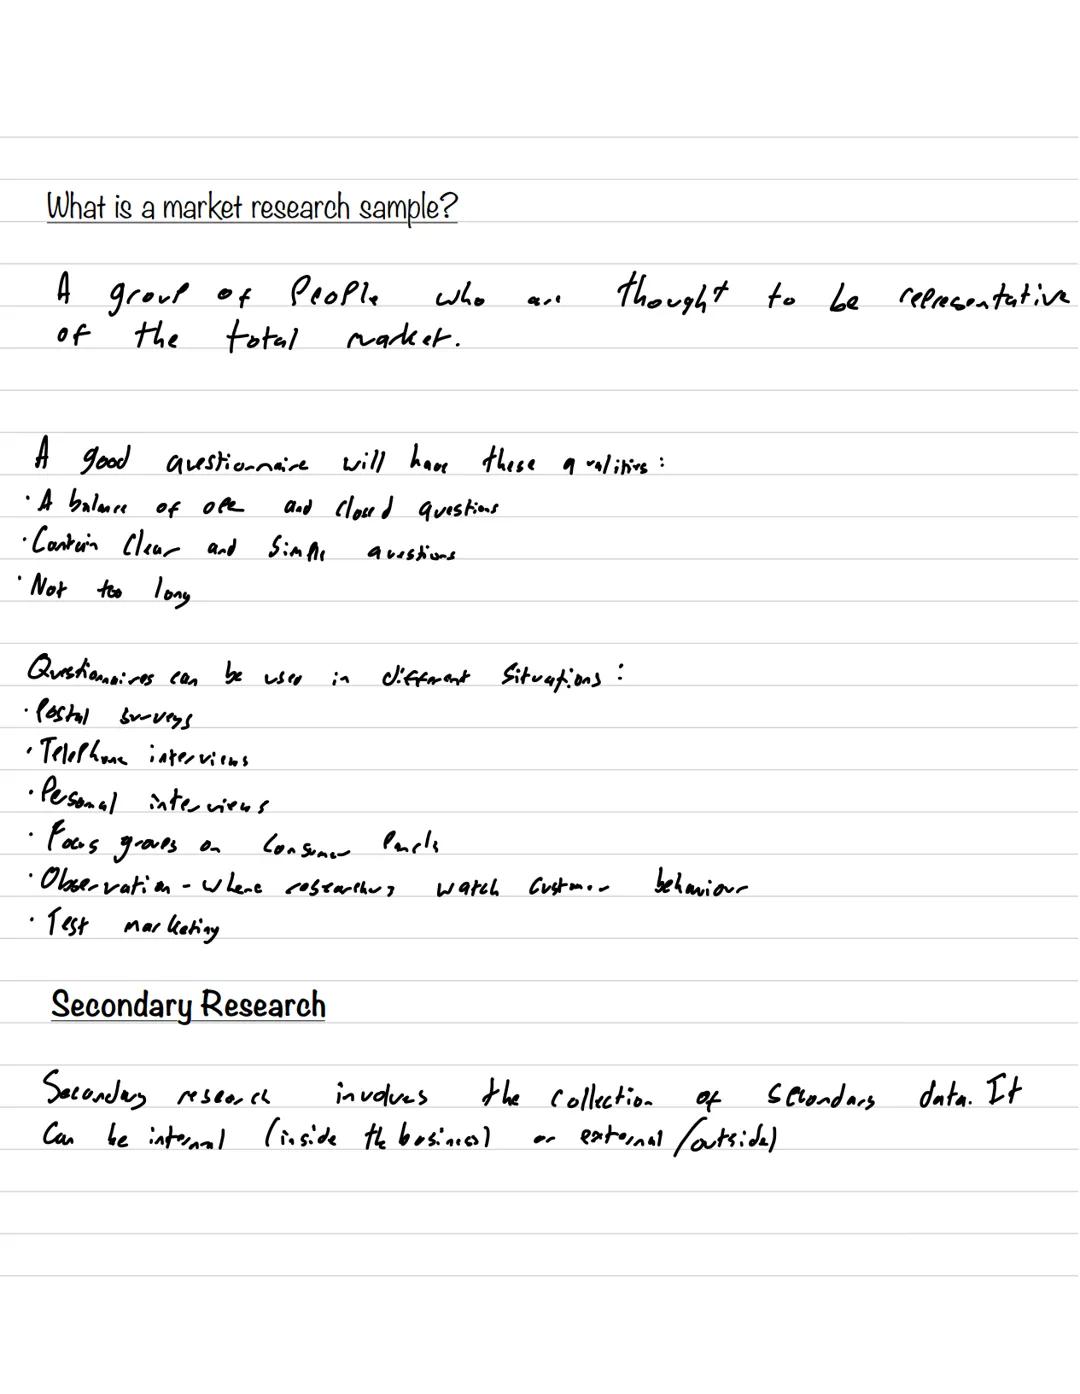 What is a market research sample?
A group of People who are thought to be representative
of the total market.
A good questionnaire will have these qualities:
· A balance of open and closed questions
· Contain Clear and Simple questions
· Not too long
Questionnaires can be used in different Situations:
· Postal surveys
· Telephone interviews
· Personal interviews
· Focus groups or Consumer Panels
· Observation - where researchers watch customer behaviour
· Test marketing
Secondary Research
Secondary research involves the collection of secondary data. It
Can be internal (inside the business) or external (outside)